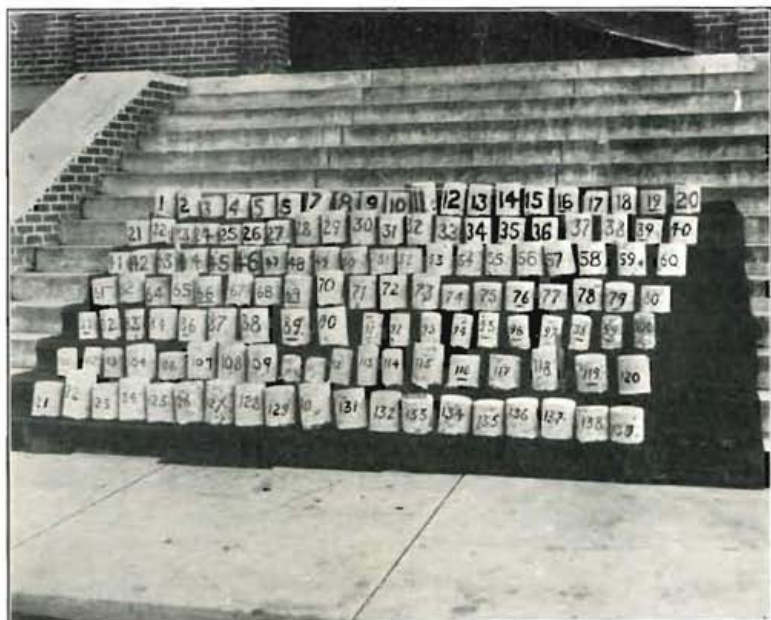 1 2 3 4 5 6 7 8 9 10 11 12 13 14 15 16 17 18 19 20
21 22 23 24 25 26 27 28 29 30 31 32 33 34 35 36 37 38 39 40
41 42 43 44 45 46 47 48 49 50 51 52 53 54 55 56 57 58 59 60
62 64 65 66 67 68 69 70 71 72 73 74 75 76 77 78 79 80
84 86 87 88 89 90 92 93 94 95 96 97 98 99 100
104 107 108 109 113 114 115 116 117 118 119 120
123 125 128 129 131 132 133 134 135 136 137 138 139